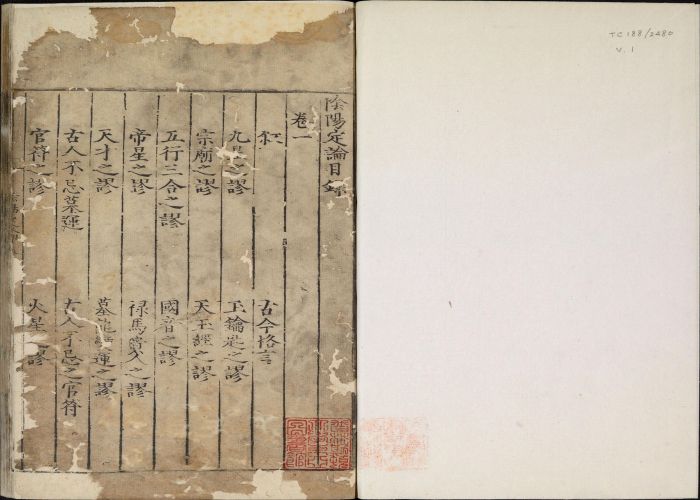 TC 188/2480
V. 1
陰陽定論目錄
卷一
古今格言
九星之謬
玉鑰匙之謬
宗廟之謬
天玉經之謬
五行三合之謬
國音之謬
帝星之謬
祿馬貴人之謬
天才之謬
墓龍變運之謬
古人不忌墓運
古人不忌之官符
官符之謬
火星之謬